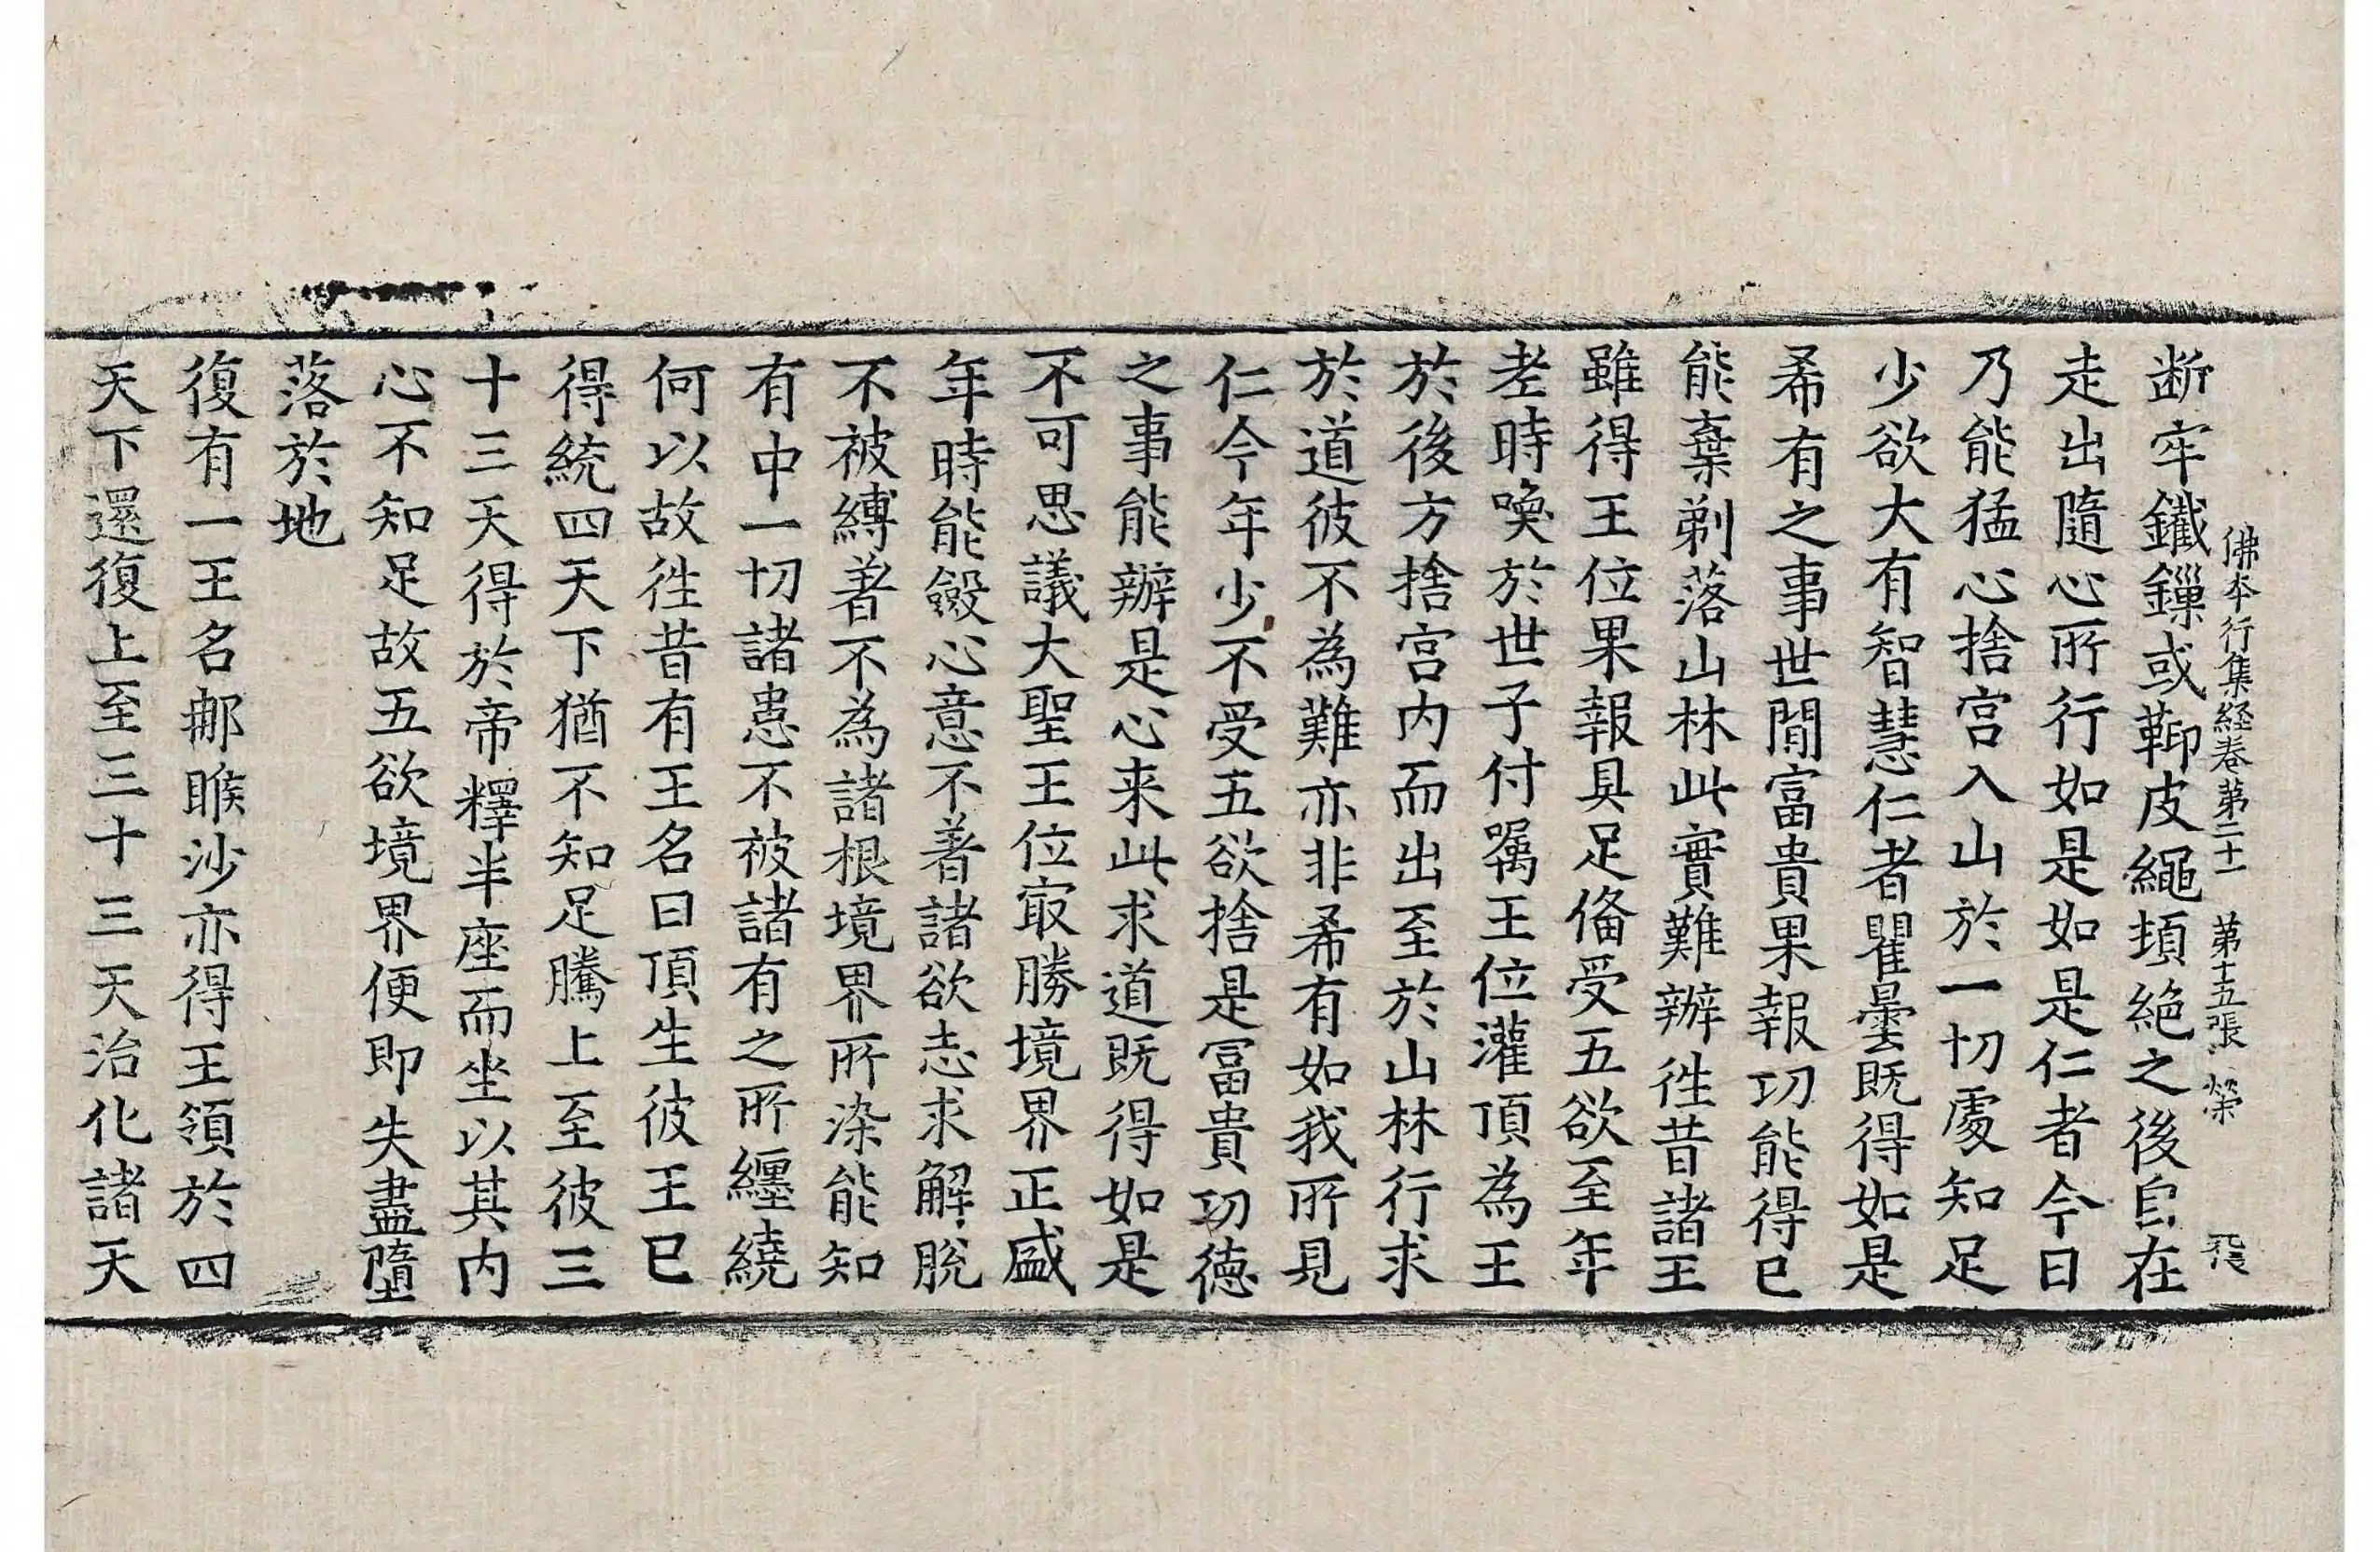 断牢鐵鏁或鞕皮繩頓絶之後自在
佛本行集経卷第二十一 第十五張 榮
走出隨心所行如是如是仁者今日
乃能猛心捨宫入山於一切處知足
少欲大有智慧仁者瞿曇既得如是
希有之事世間富貴果報功能得已
能棄剃落山林此實難辦徃昔諸王
雖得王位果報具足俻受五欲至年
老時喚於世子付囑王位灌頂為王
於後方捨宫内而出至於山林行求
於道彼不為難亦非希有如我所見
仁今年少不受五欲捨是冨貴功徳
之事能辦是心来此求道既得如是
不可思議大聖王位㝡勝境界正盛
年時能斂心意不著諸欲志求解脫
不被縛著不為諸根境界所染能知
有中一切諸患不被諸有之所纒繞
何以故徃昔有王名曰頂生彼王已
得統四天下猶不知足騰上至彼三
十三天得於帝釋半座而坐以其内
心不知足故五欲境界便即失盡墮
落於地
復有一王名那睺沙亦得王領於四
天下還復上至三十三天治化諸天